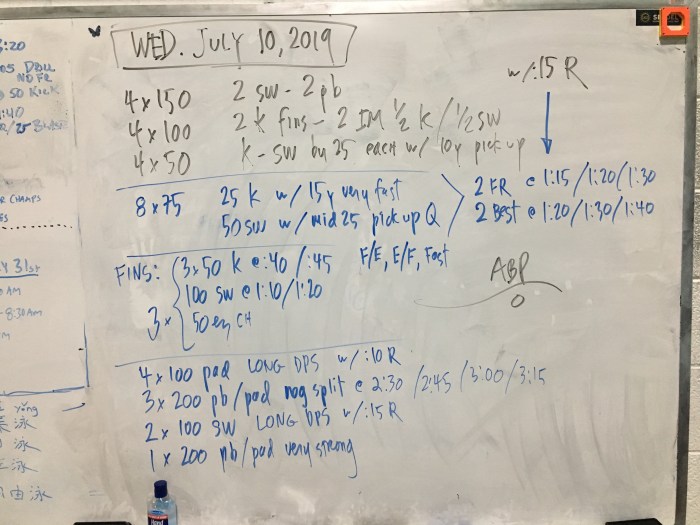 WED. JULY 10, 2019
w/:15 R
4 x 150 2 sw - 2 pb
4 x 100 2 k fins - 2 IM ½ k / ½ sw
4 x 50 k - sw by 25 each w/ 10y pick up
8 x 75 25 k w/ 15y very fast
50 sw w/ mid 25 pick up Q
2 FR @ 1:15/1:20/1:30
2 Best @ 1:20/1:30/1:40
FINS: 3x50 k @ :40 / :45 F/E, E/F, Fast
100 sw @ 1:10/1:20
3x 50 ez CH
ABP
O
4 x 100 pad LONG DPS w/ :10 R
3 x 200 pb/pad neg split @ 2:30 /2:45 /3:00/3:15
2 x 100 SW LONG DPS w/:15 R
1 x 200 pb/pad very strong
:20
DBLL
ND FR
50 KICK
:40
CHAMPS
31st
AM
8:30AM
yǒng
泳
泳
泳
由泳
Hand